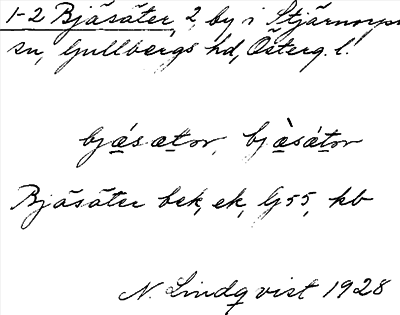 1-2 Bjäsäter, 2, by i Stjärnorps
sn, Gullbergs hd, Österg. l.
bjæ̀sætor, bjæ̀sátor
Bjäsäter bek, ek, G55, kb
N. Lindqvist 1928